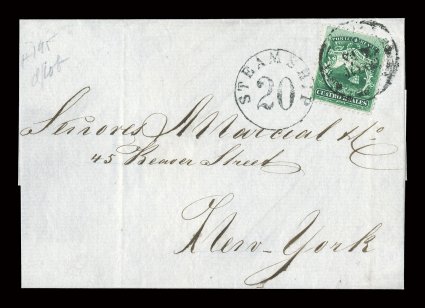 STEAMSHIP
20
CUATRO REALES
Señores A Marcial & Co
45 Beaver Street
New-York